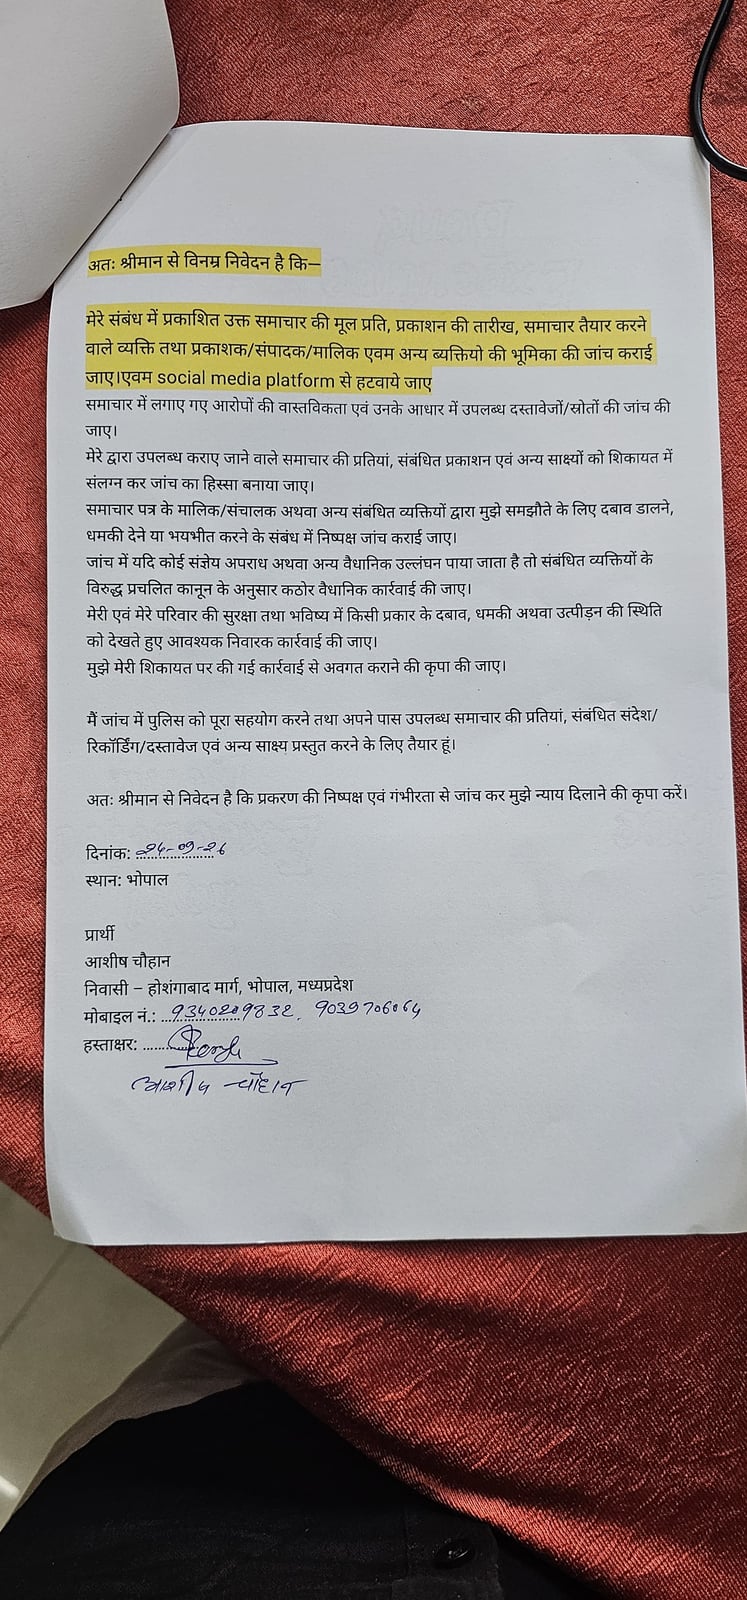 अतः श्रीमान से विनम्र निवेदन है कि—
मेरे संबंध में प्रकाशित उक्त समाचार की मूल प्रति, प्रकाशन की तारीख, समाचार तैयार करने
वाले व्यक्ति तथा प्रकाशक/संपादक/मालिक एवम अन्य ब्यक्तियो की भूमिका की जांच कराई
जाए।एवम social media platform से हटवाये जाए
समाचार में लगाए गए आरोपों की वास्तविकता एवं उनके आधार में उपलब्ध दस्तावेजों/स्रोतों की जांच की
जाए।
मेरे द्वारा उपलब्ध कराए जाने वाले समाचार की प्रतियां, संबंधित प्रकाशन एवं अन्य साक्ष्यों को शिकायत में
संलग्न कर जांच का हिस्सा बनाया जाए।
समाचार पत्र के मालिक/संचालक अथवा अन्य संबंधित व्यक्तियों द्वारा मुझे समझौते के लिए दबाव डालने,
धमकी देने या भयभीत करने के संबंध में निष्पक्ष जांच कराई जाए।
जांच में यदि कोई संज्ञेय अपराध अथवा अन्य वैधानिक उल्लंघन पाया जाता है तो संबंधित व्यक्तियों के
विरुद्ध प्रचलित कानून के अनुसार कठोर वैधानिक कार्रवाई की जाए।
मेरी एवं मेरे परिवार की सुरक्षा तथा भविष्य में किसी प्रकार के दबाव, धमकी अथवा उत्पीड़न की स्थिति
को देखते हुए आवश्यक निवारक कार्रवाई की जाए।
मुझे मेरी शिकायत पर की गई कार्रवाई से अवगत कराने की कृपा की जाए।
मैं जांच में पुलिस को पूरा सहयोग करने तथा अपने पास उपलब्ध समाचार की प्रतियां, संबंधित संदेश/
रिकॉर्डिंग/दस्तावेज एवं अन्य साक्ष्य प्रस्तुत करने के लिए तैयार हूं।
अतः श्रीमान से निवेदन है कि प्रकरण की निष्पक्ष एवं गंभीरता से जांच कर मुझे न्याय दिलाने की कृपा करें।
दिनांक:
स्थान: भोपाल
प्रार्थी
आशीष चौहान
निवासी – होशंगाबाद मार्ग, भोपाल, मध्यप्रदेश
मोबाइल नं.: 9340209832, 9039706064
हस्ताक्षर:
आशीष चौहान